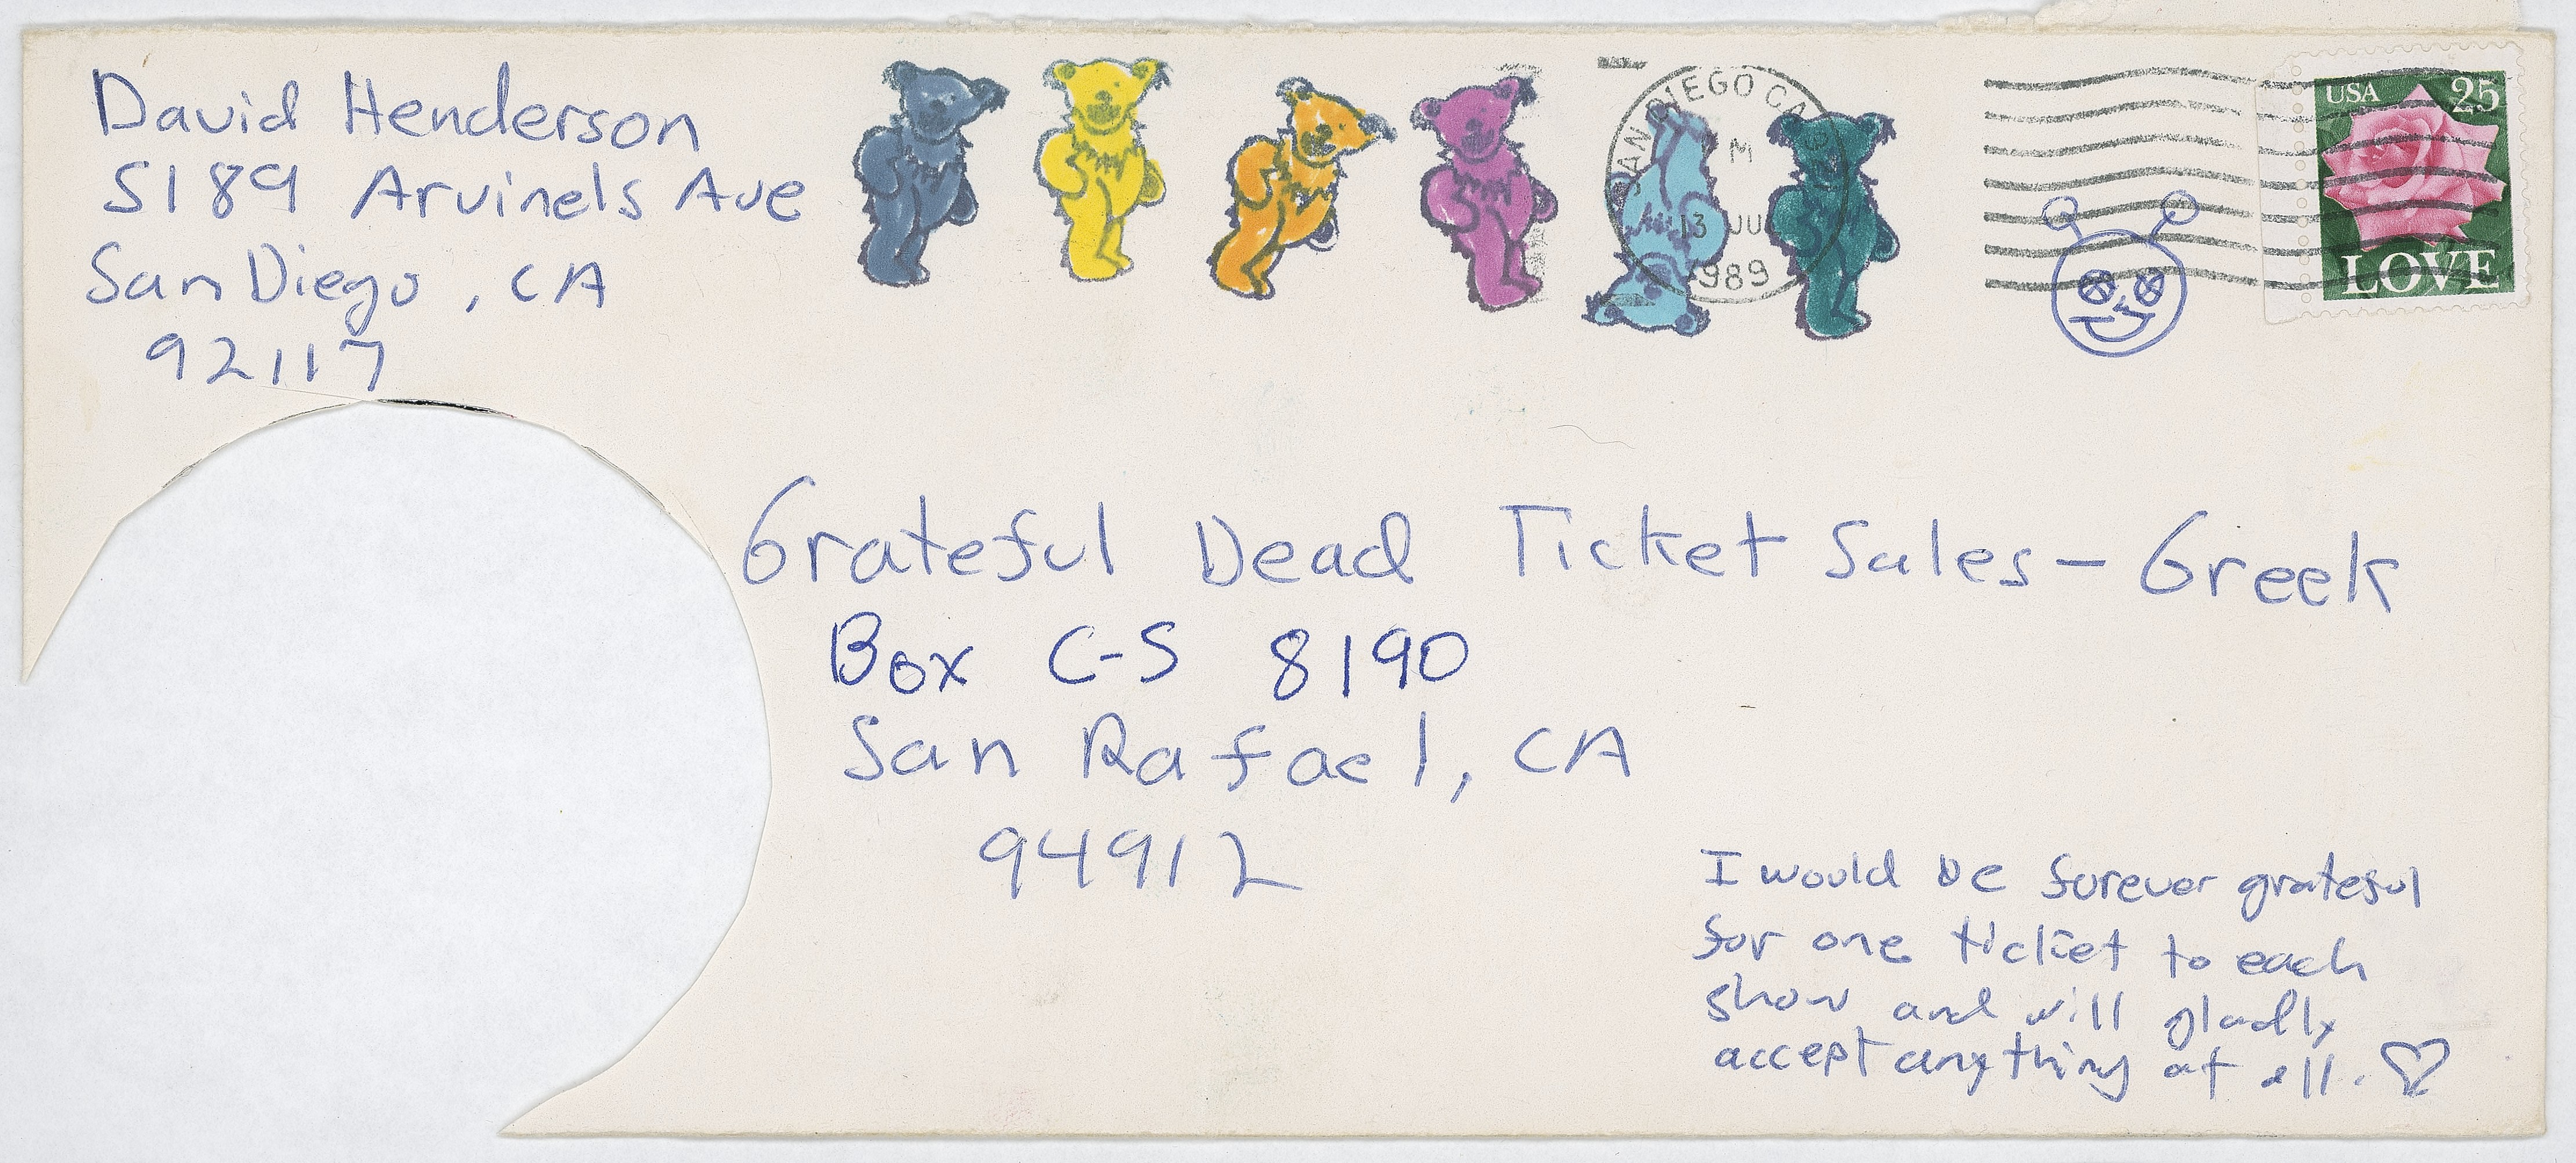 David Henderson
5189 Arvinels Ave
San Diego, CA
92117
SAN DIEGO CA
M
13 JU
1989
USA 25
LOVE
Grateful Dead Ticket Sales - Greek
Box C-S 8190
San Rafael, CA
94912
I would be forever grateful
for one ticket to each
show and will gladly
accept anything at all. ♡